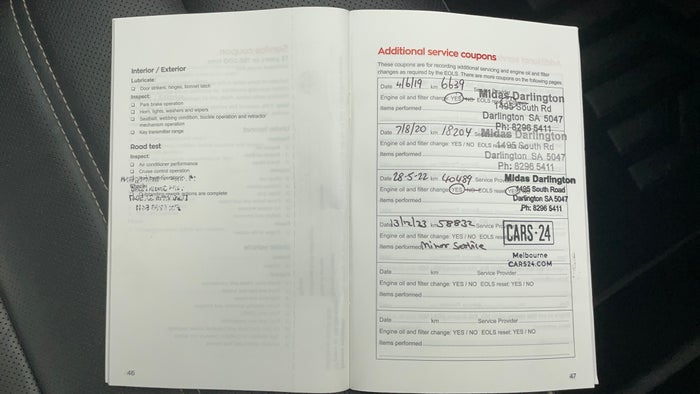 Interior / Exterior
Lubricate:
Door strikers, hinges, bonnet latch
Inspect:
Park brake operation
Horn, lights, washers and wipers
Seatbelt, webbing condition, buckle operation and retractor
mechanism operation
Key transmitter range
Road test
Inspect:
Air conditioner performance
Cruise control operation
actions are complete
46
Additional service coupons
These coupons are for recording additional servicing and engine oil and filter
changes as required by the EOLS. There are more coupons on the following pages.
Date 4/6/19 km 6639
Midas Darlington
Engine oil and filter change YES NO EOLS
1495 South Rd
Items performed
Darlington SA 5047
Ph: 8296 5411
Date 7/8/20 km 18204
Midas Darlington
Engine oil and filter change: YES / NO EOLS
1495 South Rd
Items performed
Darlington SA 5047
Ph: 8296 5411
Date 28-5-22 km 40489 Service
Midas Darlington
Engine oil and filter change YES NO EOLS reset
1495 South Road
Items performed
Darlington SA 5047
Ph: 8296 5411
Date 13/12/23 km 58832 Service
Engine oil and filter change: YES / NO EOLS reset
CARS-24
Items performed Minor Service
Melbourne
CARS24.COM
Date km Service Provider
Engine oil and filter change: YES / NO EOLS reset: YES / NO
Items performed
Date km Service Provider
Engine oil and filter change: YES / NO EOLS reset: YES / NO
Items performed
47